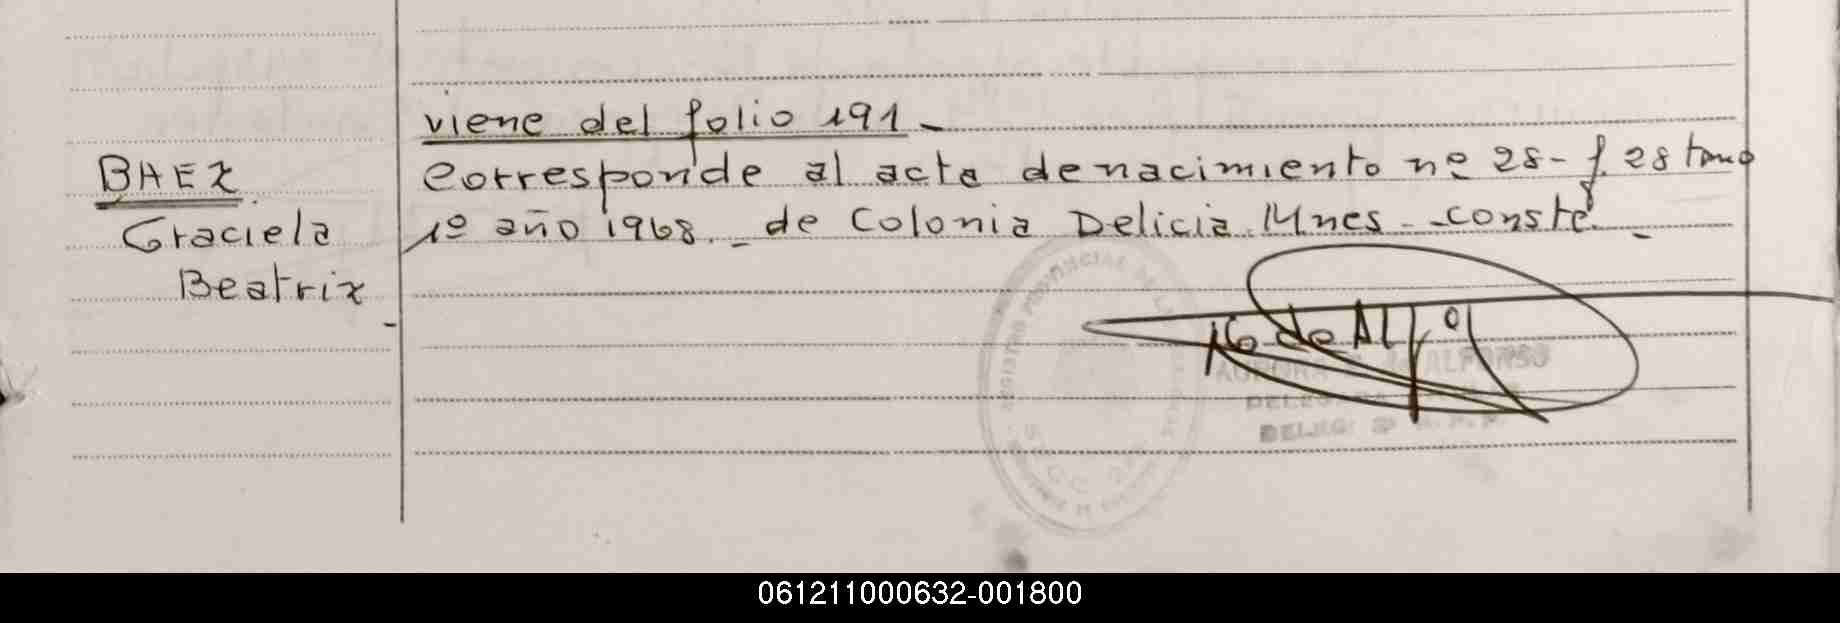 viene del folio 191 -
BAEZ Corresponde al acta de nacimiento nº 28 - f. 28 tomo
Graciela 1º año 1968. - de Colonia Delicia. Mnes - conste -
Beatriz -
REGISTRO PROVINCIAL DE LA
AURORA ALFONSO
061211000632-001800